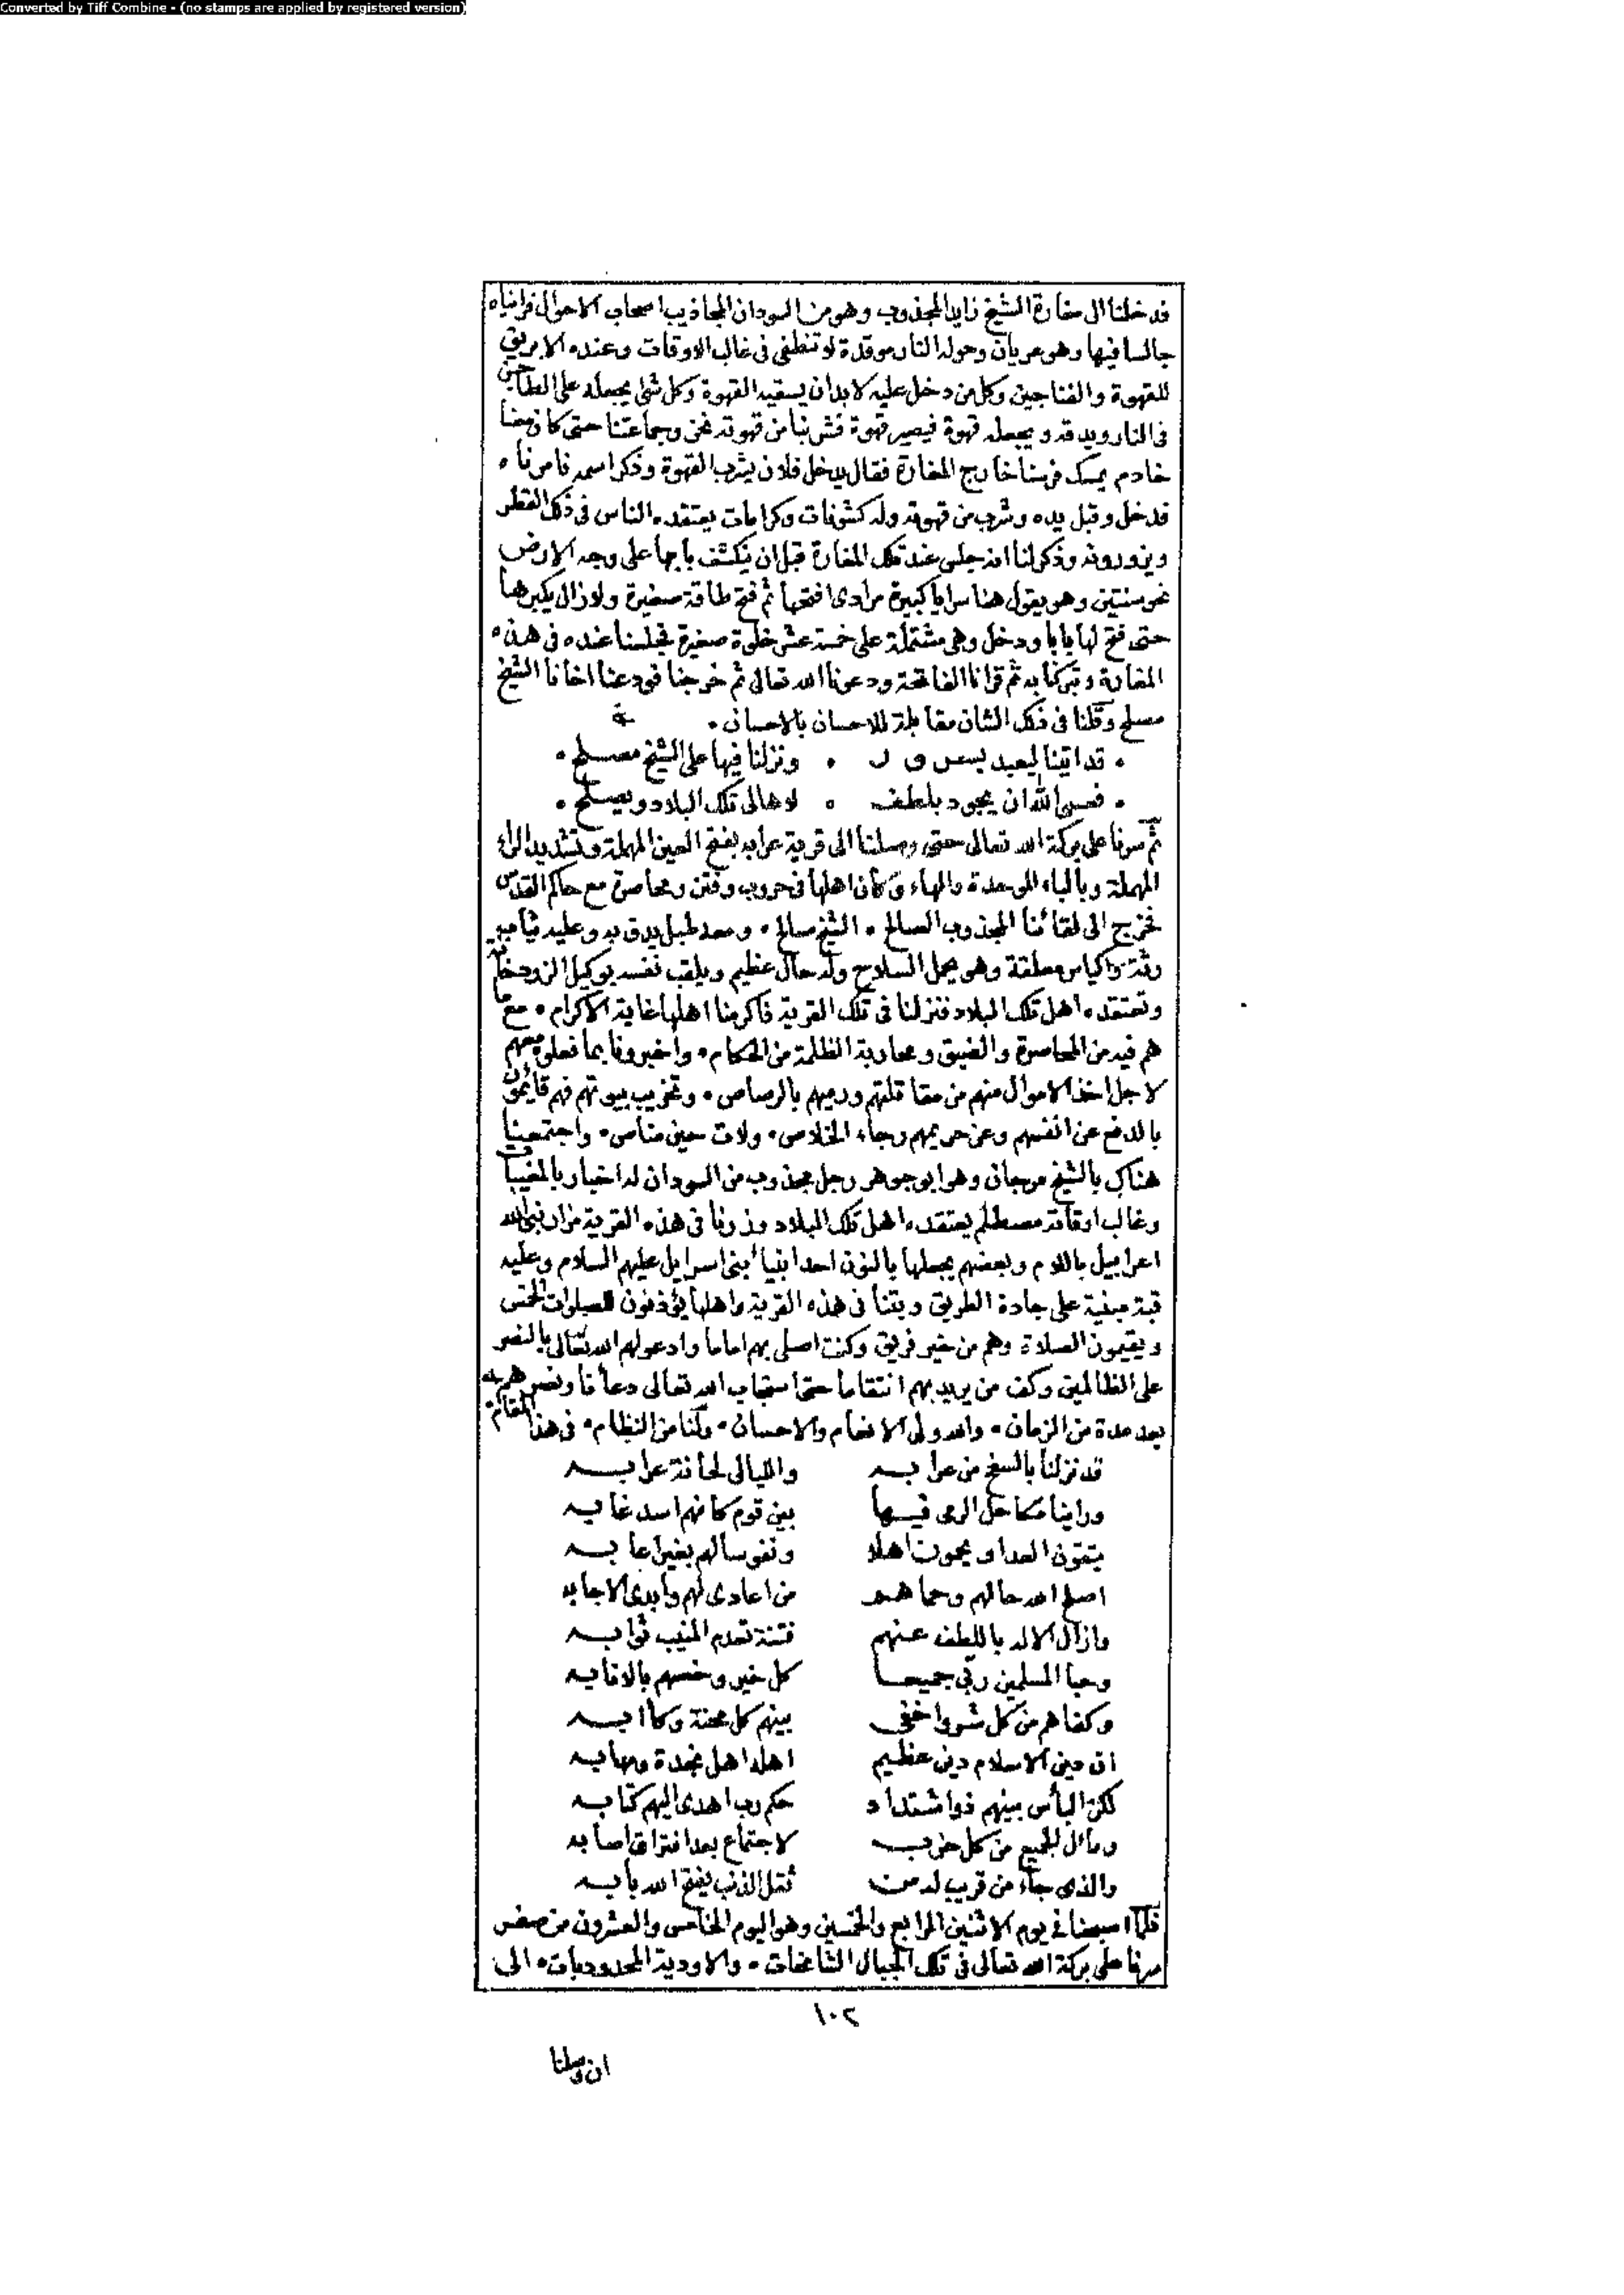 Converted by Tiff Combine - (no stamps are applied by registered version)
فدخلنا الى مغارة الشيخ زايد المجذوب وهو من السودان المجاذيب اصحاب الاحوال فرايناه
جالسا فيها وهو عريان وحوله النار موقدة لا تنطفى فى غالب الاوقات وعنده الابريق
للقهوة والفناجين وكل من دخل عليه لا بد ان يسقيه القهوة وكل شئ يجعله على الطاجن
فى النار ويدقه ويجعله قهوة فيصير قهوة فشربنا من قهوته نحن وجماعتنا حتى كان معنا
خادم يمسك فرسنا خارج المغارة فقال يدخل فلان يشرب القهوة وذكر اسمه فامرناه
فدخل وقبل يده وشرب من قهوته وله كشوفات وكرامات يعتقده الناس فى ذلك القطر
ويزورونه وذكر لنا انه جلس عند تلك المغارة قبل ان ينكشف بابها على وجه الارض
نحو سنتين وهو يقول هنا سرايا كبيرة مرادى افتحها ثم فتح طاقة صغيرة ولا زال يكبرها
حتى فتح لها بابا ودخل وهى مشتملة على خمسة عشر خلوة صغيرة فجلسنا عنده فى هذه
المغارة وتبركنا به ثم قرانا الفاتحة ودعونا الله تعالى ثم خرجنا فودعنا اخانا الشيخ
مصلح وقلنا فى ذلك الشان مقابلة للاحسان بالاحسان
قد اتينا ليعبد بسرور ونزلنا فيها على الشيخ مصلح
فعسى الله ان يجود بلطف لاهالى تلك البلاد ويصلح
ثم سرنا على بركة الله تعالى حتى وصلنا الى قرية عرابه بفتح العين المهملة وتشديد الراء
المهملة وبالباء الموحدة والهاء وكان اهلها فى حروب وفتن ومحاصرة مع حاكم القدس
فخرج الى لقائنا المجذوب الصالح الشيخ صالح ومعه طبل يدق به وعليه ثياب
رثة واكياس معلقة وهو يحمل السلاح وله حال عظيم ويلقب نفسه بوكيل الزردخانه
وتعتقده اهل تلك البلاد فنزلنا فى تلك القرية فاكرمنا اهلها غاية الاكرام مع ما
هم فيه من المحاصرة والضيق ومحاربة الظلمة من الحكام واخبرونا بما فعلوه معهم
لاجل اخذ الاموال منهم من مقاتلتهم ورميهم بالرصاص وتخريب بيوتهم فهم قايمون
بالدفع عن انفسهم وعن حريمهم رجاء الخلاص ولات حين مناص واجتمعنا
هناك بالشيخ مرجان وهو ابو جوهر رجل مجذوب من السودان له اخبار بالمغيبات
وغالب اوقاته مصطلم يعتقده اهل تلك البلاد وزرنا فى هذه القرية مزار نبى الله
اعرابيل باللام وبعضهم يجعلها بالنون احد انبيا بنى اسرايل عليهم السلام وعليه
قبة مبنية على جادة الطريق وبتنا فى هذه القرية واهلها يؤذنون للصلوات الخمس
ويقيمون الصلاة وهم من خير فريق وكنت اصلى بهم اماما وادعو لهم الله تعالى بالنصر
على الظالمين وكف من يريد بهم انتقاما حتى استجاب الله تعالى دعانا ونصرهم
بعد مدة من الزمان والله ولى الانعام والاحسان ولنا من النظام فى هذا المقام
قد نزلنا بالسفح من عرابه والليالى لحانة عرابه
وراينا مكاحل الرمى فيها بين قوم كانهم اسد غابه
يتقون العدا ويحمون اهلا ونفوسا لهم بغير اعابه
اصلح الله حالهم وحماهم من اعادى لهم وابدى الاجابه
وازال الاله باللطف عنهم فتنة تعدم المنيب ثوابه
وحبا المسلمين ربى جميعا كل خير وخصهم بالانابه
وكفاهم من كل شر واخفى بينهم كل محنة وكآبه
ان دين الاسلام دين عظيم اهله اهل نجدة ومهابه
لكن الباس بينهم ذو اشتداد حكم رب اهدى اليهم كتابه
ومآل الجميع من كل حزب لاجتماع بعد افتراق اصابه
والذى جاء من قريب له من ثقل الذنب يفتح الله بابه
فلما اصبحنا فى يوم الاثنين الرابع والخمسين وهو اليوم الخامس والعشرون من صفر
سرنا على بركة الله تعالى فى تلك الجبال الشامخات والاودية المحدودبات الى
١٠٢
ان وصلنا